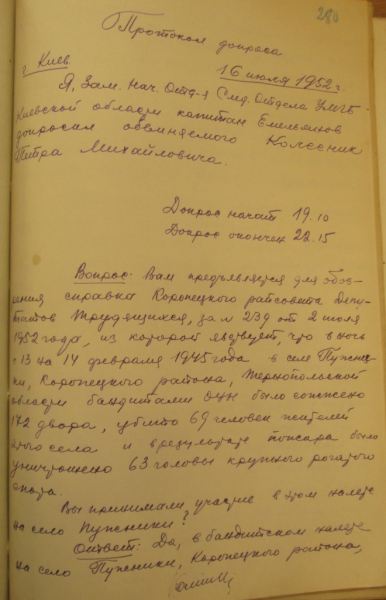 280
Протокол допроса
г. Киев
16 июля 1952 г.
Я, Зам. Нач. Отд-я След. Отдела УМГБ
Киевской области капитан Емельянов
допросил обвиняемого Колесник
Петра Михайловича.
Допрос начат 19.10
Допрос окончен 22.15
Вопрос: Вам предъявляется для обоз-
рения справка Коропецкого райсовета Депу-
татов Трудящихся, за № 239 от 2 июля
1952 года, из которой явствует, что в ночь
с 13 на 14 февраля 1945 года в селе Пужни-
ки, Коропецкого района, Тернопольской
области бандитами ОУН было сожжено
172 двора, убито 69 человек жителей
этого села и в результате пожара было
уничтожено 63 головы крупного рогатого
скота.
Вы принимали участие в этом налете
на село Пужники?
Ответ: Да, в бандитском налете
на село Пужники, Коропецкого района,